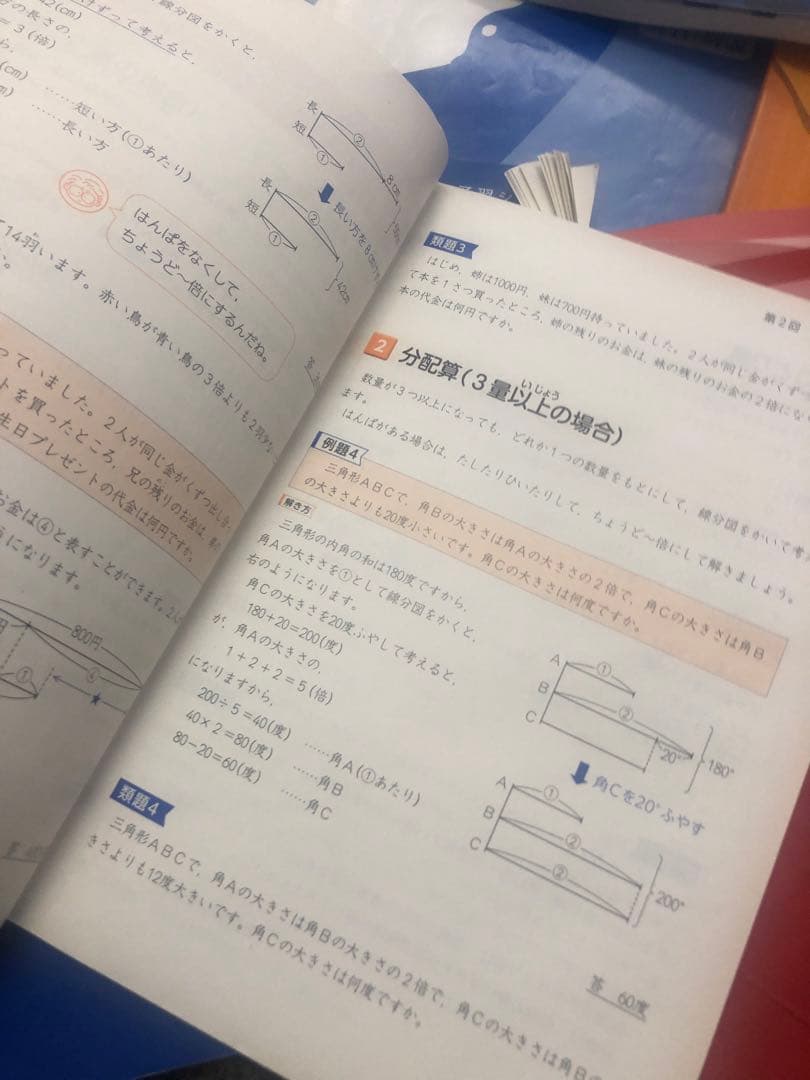 線分図をかくと、
ずつて考えると、
の長さの、
＝3(倍)
(cm)
……短い方(①あたり)
……長い方
長
短
②
①
8cm
長い方を8cm
長
短
②
①
42cm
はんぱをなくして、
ちょうど〜倍にするんだね。
14羽います。赤い鳥が青い鳥の3倍よりも2羽
っていました。2人が同じ金がくずつ出し
トを買ったところ、兄の残りのお金は、
生日プレゼントの代金は何円ですか。
お金は④と表すことができます。2人
うになります。
800円
④
①
★
第2回
類題3
はじめ、姉は1000円、妹は700円持っていました。2人が同じ金がくず
て本を1さつ買ったところ、姉の残りのお金は、妹の残りのお金の2倍にな
本の代金は何円ですか。
2 分配算(3量以上の場合)
いじょう
数量が3つ以上になっても、どれか1つの数量をもとにして、線分図をかいて考え
ます。
はんぱがある場合は、たしたりひいたりして、ちょうど〜倍にして解きましょう。
例題4
三角形ABCで、角Bの大きさは角Aの大きさの2倍で、角Cの大きさは角B
の大きさよりも20度小さいです。角Cの大きさは何度ですか。
解き方
三角形の内角の和は180度ですから、
角Aの大きさを①として線分図をかくと、
右のようになります。
角Cの大きさを20度ふやして考えると、
180+20=200(度)
が、角Aの大きさの、
1+2+2=5(倍)
になりますから、
200÷5=40(度) ……角A(①あたり)
40×2=80(度) ……角B
80−20=60(度) ……角C
A
B
C
①
②
20°
180°
角Cを20°ふやす
A
B
C
①
②
②
200°
答 60度
類題4
三角形ABCで、角Aの大きさは角Bの大きさの2倍で、角Cの大きさは角Bの
きさよりも12度大きいです。角Cの大きさは何度ですか。